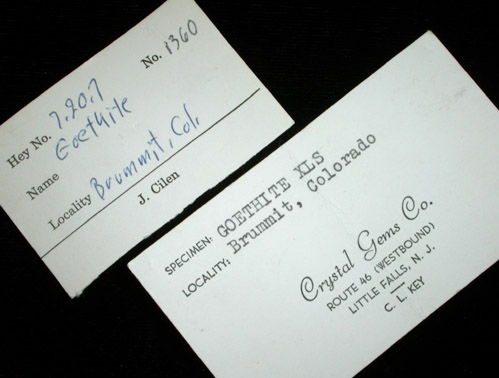 No. 1360
Hey No. 7.20.7
Name Goethite
Locality Brummit, Col.
J. Cilen
SPECIMEN: GOETHITE XLS
LOCALITY: Brummit, Colorado
Crystal Gems Co.
ROUTE 46 (WESTBOUND)
LITTLE FALLS, N. J.
C. L. KEY